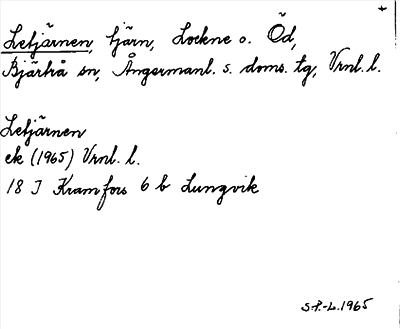 Letjärnen, tjärn, Lockne o. Öd,
Bjärtrå sn, Ångermanl. s. doms. tg, Vrnl. l.
Letjärnen
ek (1965) Vrnl. l.
18 J Kramfors 6 b Lungvik
S-P.-L. 1965